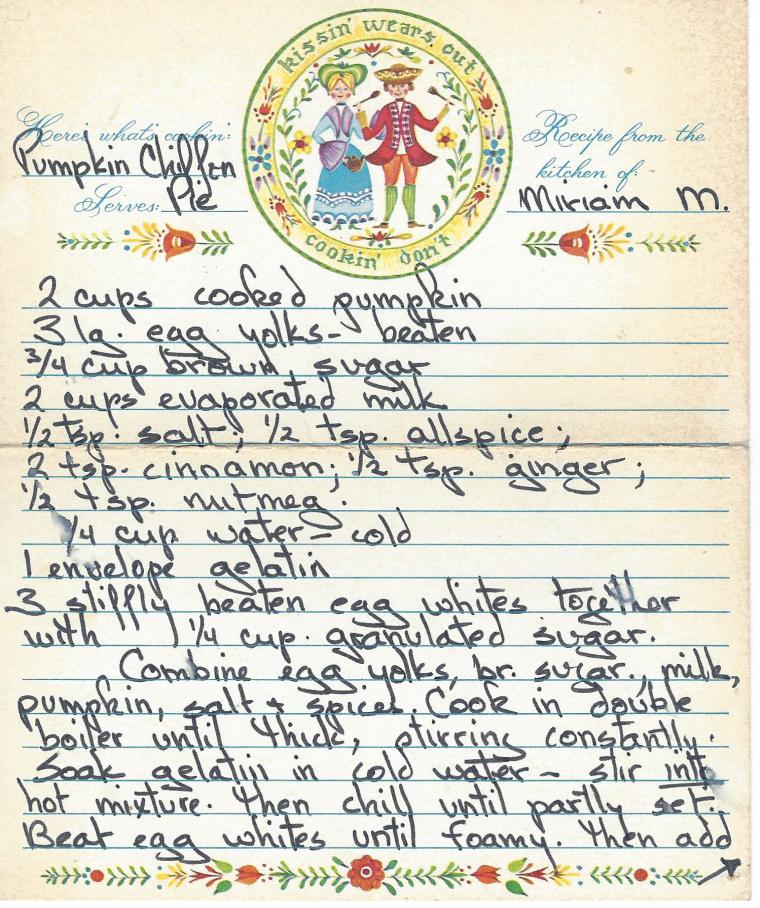 kissin' wears out
cookin' don't
Here's what's cookin':
Pumpkin Chiffon
Serves: Pie
Recipe from the
kitchen of:
Miriam M.
2 cups cooked pumpkin
3 lg. egg yolks - beaten
3/4 cup brown sugar
2 cups evaporated milk
1/2 tsp. salt; 1/2 tsp. allspice;
2 tsp. cinnamon; 1/2 tsp. ginger;
1/2 tsp. nutmeg.
1/4 cup water - cold
1 envelope gelatin
3 stiffly beaten egg whites together
with 1/4 cup granulated sugar.
Combine egg yolks, br. sugar, milk,
pumpkin, salt + spices. Cook in double
boiler until thick, stirring constantly.
Soak gelatin in cold water - stir into
hot mixture. Then chill until partly set.
Beat egg whites until foamy. Then add